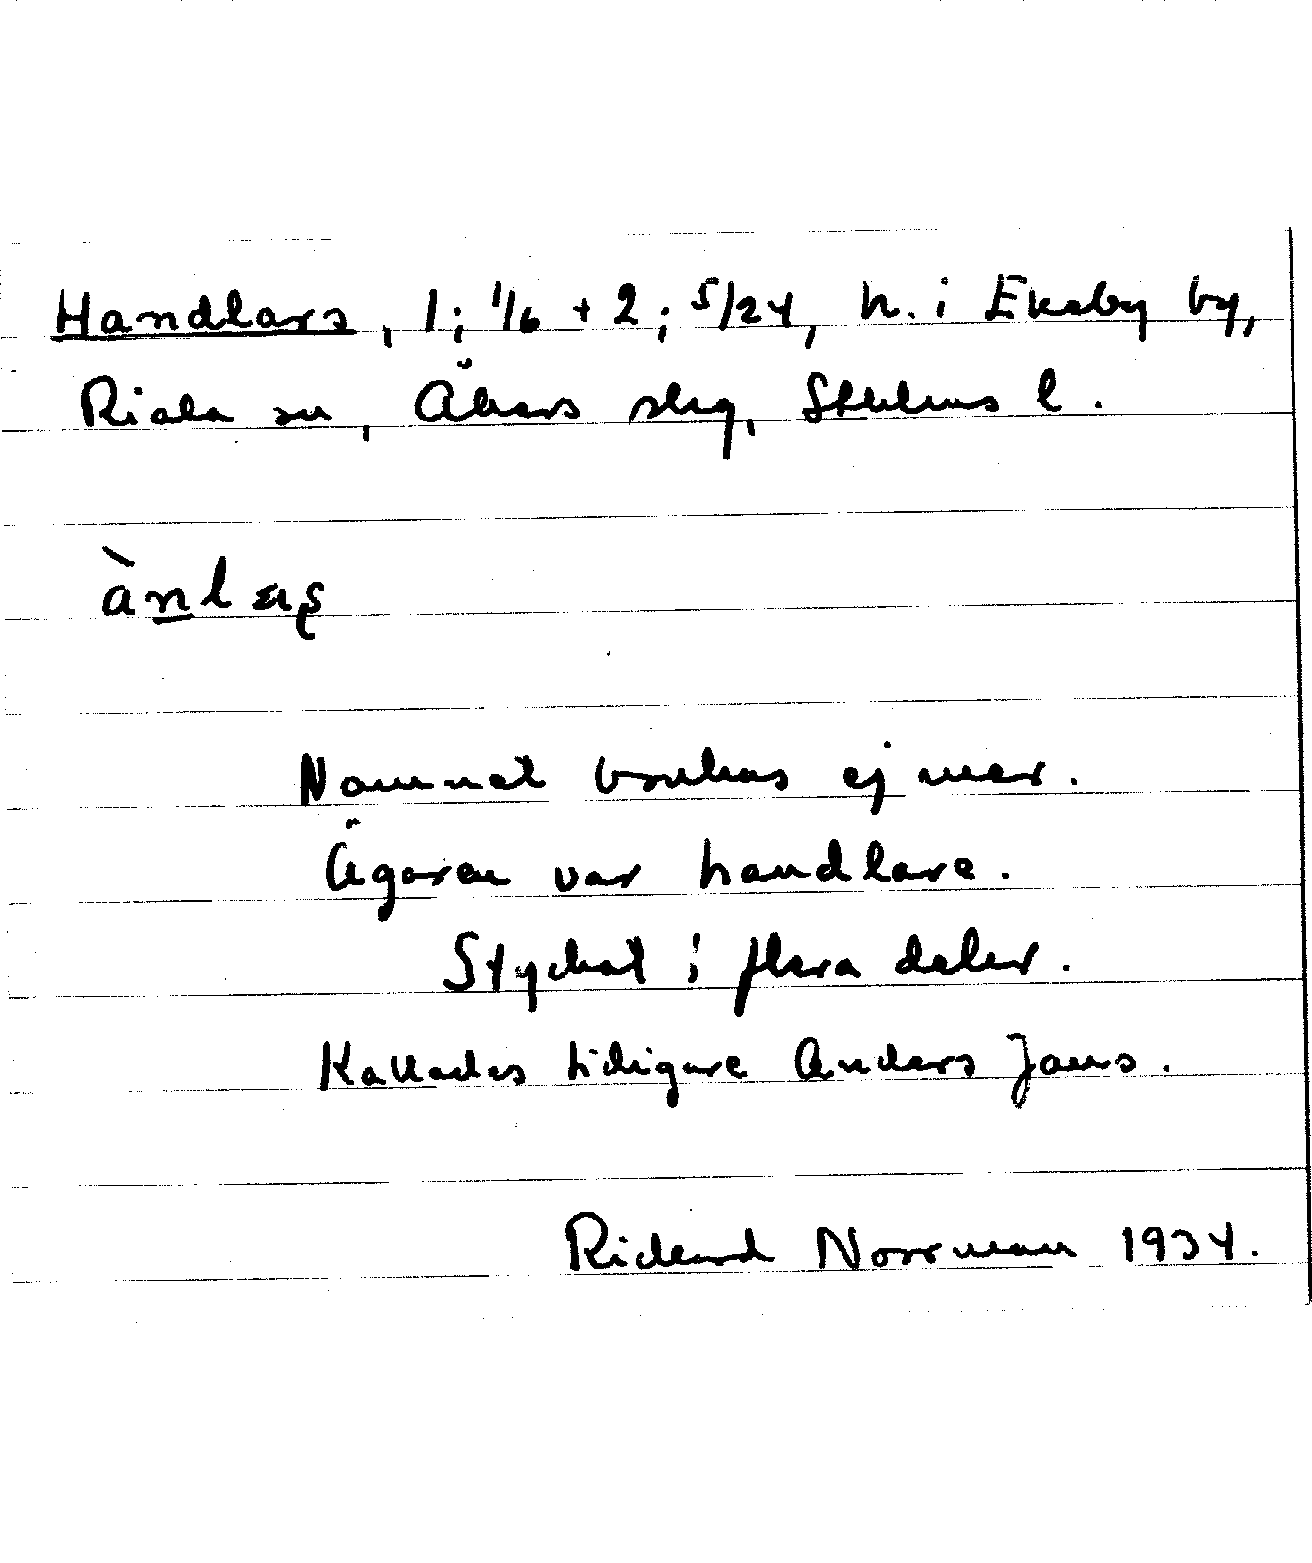 Handlars, 1; 1/6 + 2; 5/24, h. i Ekeby by,
Riala sn, Åkers slg, Sthlms l.
Namnet brukas ej mer.
Ägaren var handlare.
Styckat i flera delar.
Kallades tidigare Anders Jans.
Rickard Norrman 1934.